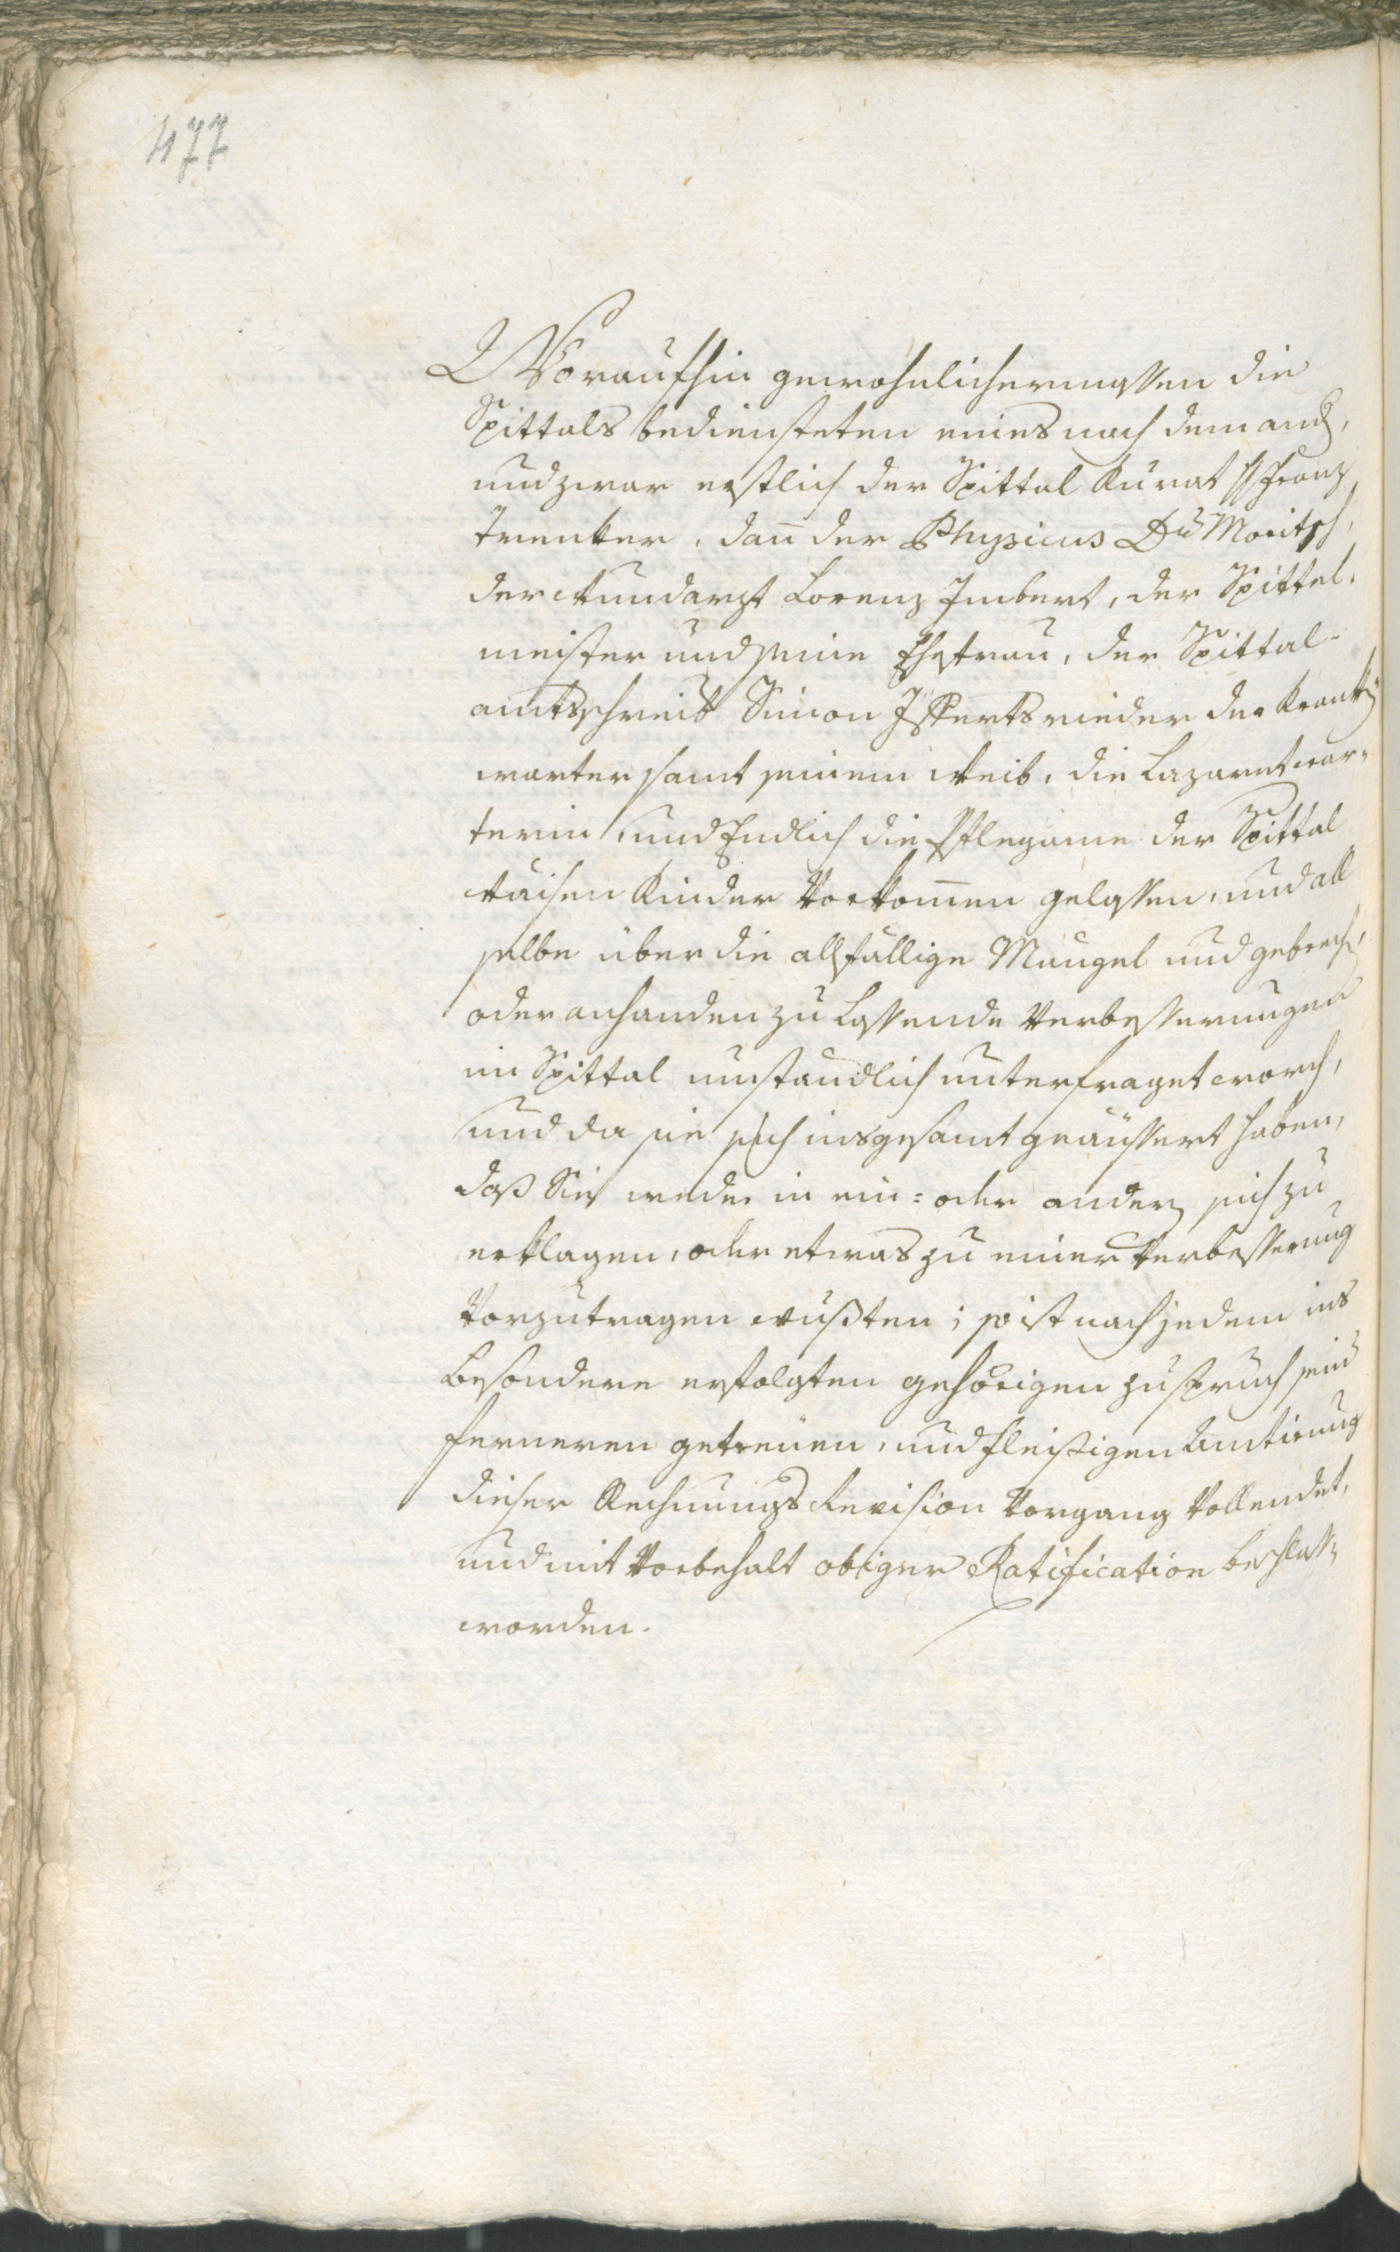 477
Woraufhin gewohnlichermassen die
Spittals bediensteten eines nach dem and,
und zwar erstlich der Spittal Kurat H Franz
Trenker, dan̄ der Physicus Dr Moritsch,
der Wundarzt Lorenz Imbert, der Spittel-
meister und seine Ehefrau, der Spittal-
amtsschreib Simon der Krank
warter samt seinem Weib, die Lazaretwar=
terin, und Endlich die Pflegame der Spittal
Waisen Kinder Vorkom̄en gelassen, und all
selbe über die allfällige Mängel und gebrech,
oder anhanden zu lassende Verbesserungen
im Spittal umständlich unterfraget word,
und da sie sich insgesamt geäussert haben,
daß Sie weder in ein= oder andern sich zu
erklagen, oder etwas zu einer Verbesserung
Vorzutragen wußten; so ist nach jedem ins
besondere erfolgten gehörigen zuspruch seine
ferneren getreüen, und fleißigen Amtirung
dieser Rechnungs Revision Vorgang Vollendet,
und mit Vorbehalt obiger Ratification beschloss
worden.